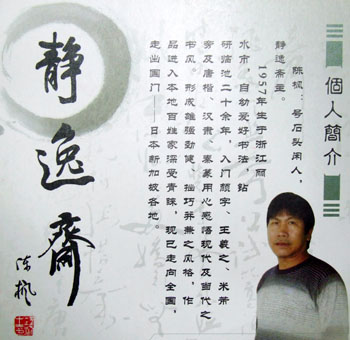 個人簡介
陈枫：号石头闲人，
静逸斋主。
1957年生于浙江丽
水市，自幼爱好书法，钻
研临池二十余年，入门颜字、王羲之、米芾
旁及唐楷、汉隶、秦篆用心感悟现代及当代之
书风。形成雄强劲健，拙巧并兼之风格，作
品进入本地百姓家深受青睐，现已走向全国，
走出国门——日本新加坡各地。
静逸齋
陈枫